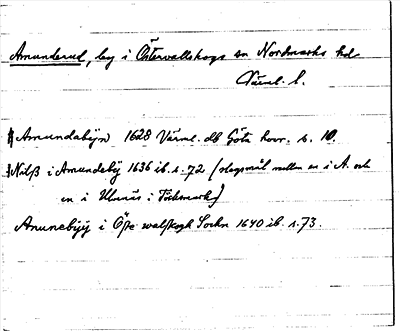 Amunderud, by i Östervallskogs sn Nordmarks hd
Värml. l.
Amundabÿn 1628 Värml. db Göta hovr. s. 10.
Nilß i Amundebÿ 1636 ib. s. 72 (slagsmål mellan en i A. och
en i Ulenäs i Töcksmark)
Amunebÿÿ i Öste walskogh Sochn 1640 ib. s. 73.